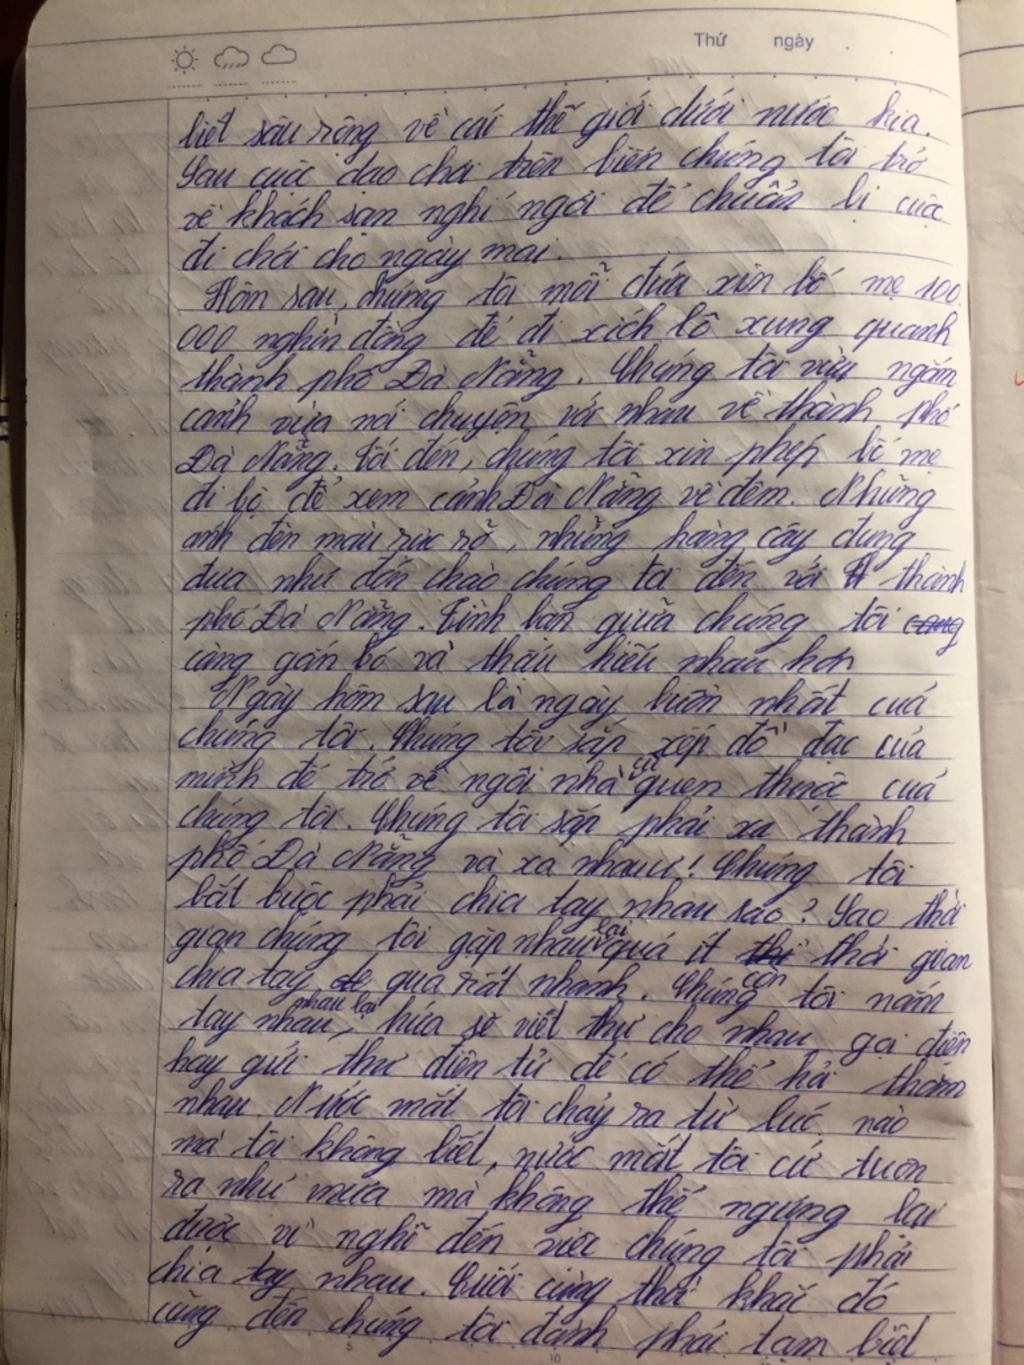 Thứ ngày
biết sâu rộng về cái thế giới dưới nước kia.
Sau cuộc dạo chơi trên biển chúng tôi trở
về khách sạn nghỉ ngơi để chuẩn bị cuộc
đi chơi cho ngày mai.
Hôm sau, chúng tôi mỗi đứa xin bố mẹ 100.
000 nghìn đồng để đi xích lô xung quanh
thành phố Đà Nẵng. Chúng tôi vừa ngắm
cảnh vừa nói chuyện với nhau về thành phố
Đà Nẵng. Tối đến, chúng tôi xin phép bố mẹ
đi bộ để xem cảnh Đà Nẵng về đêm. Những
ánh đèn màu rực rỡ, những hàng cây đung
đưa như đón chào chúng tôi đến với thành
phố Đà Nẵng. Tình bạn giữa chúng tôi
càng gắn bó và thấu hiểu nhau hơn
Ngày hôm sau là ngày buồn nhất của
chúng tôi. Chúng tôi sắp xếp đồ đạc của
mình để trở về ngôi nhà cũ quen thuộc của
chúng tôi. Chúng tôi sắp phải xa thành
phố Đà Nẵng và xa nhau! Chúng tôi
bắt buộc phải chia tay nhau sao? Sao thời
gian chúng tôi gặp nhau lại quá ít thời gian
chia tay qua rất nhanh. Chúng còn tôi nắm
tay nhau, nhau lại hứa sẽ viết thư cho nhau gọi điện
hay gửi thư điện tử để có thể hỏi thăm
nhau. Nước mắt tôi chảy ra từ lúc nào
mà tôi không biết, nước mắt tôi cứ tuôn
ra như mưa mà không thể ngừng lại
được vì nghĩ đến việc chúng tôi phải
chia tay nhau. Cuối cùng thời khắc đó
cũng đến chúng tôi đành phải tạm biệt